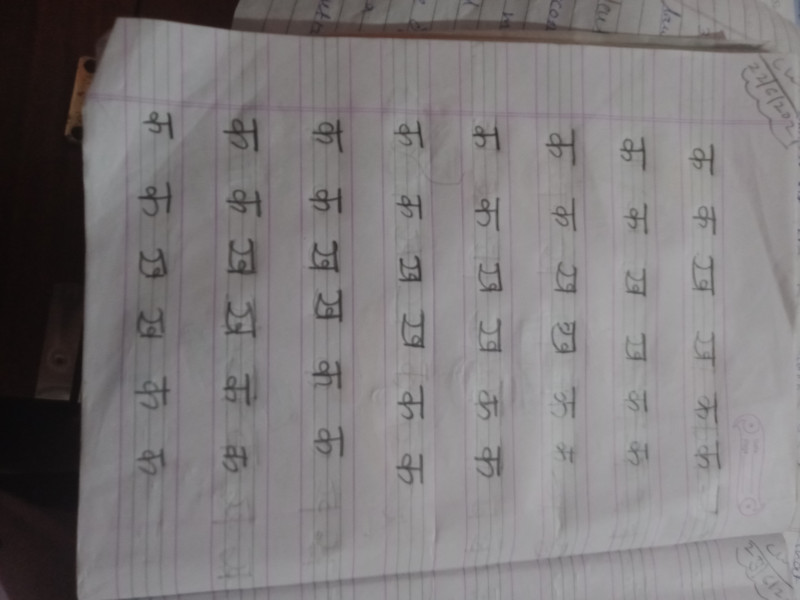 CW
22/6/2021
क क ख ख क क
क क ख ख क क
क क ख ख क क
क क ख ख क क
क क ख ख क क
क क ख ख क क
क क ख ख क क
क क ख ख क क